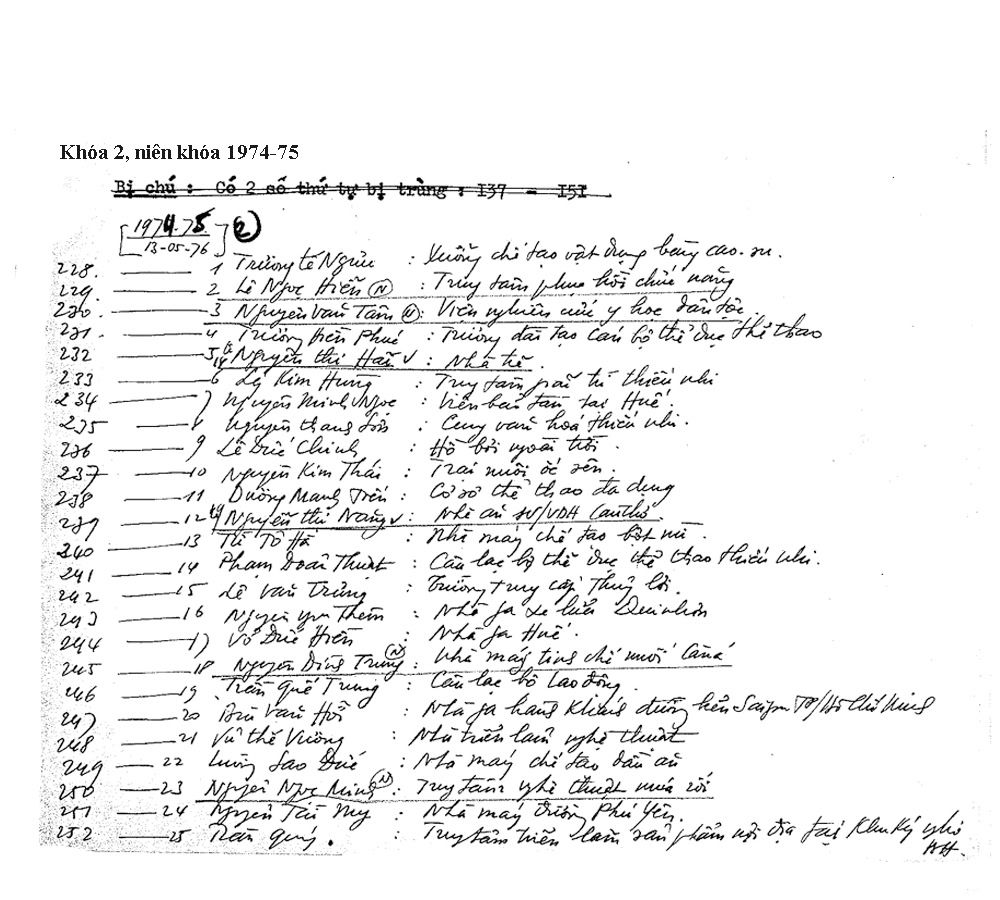 Khóa 2, niên khóa 1974-75
Bị chú : Có 2 số thứ tự bị trùng : 137 - 151 .
1974-75 2
13-05-76
228. 1 Trương tế Ngưu : Xưởng chế tạo vật dụng bằng cao-su.
229. 2 Lê Ngọc Hiền (N) : Trung tâm phục hồi chức năng
230. 3 Nguyễn Văn Tâm (N) : Viện nghiên cứu y học dân tộc
231. 4 Trương Phú : Trường đào tạo cán bộ thể dục thể thao
232 5 Nguyễn thị : Nhà trẻ.
233 6 Lý Kim Hưng : Trung tâm giải trí thiếu nhi
234 7 Nguyễn Minh Ngọc : Viện bảo tàng tại Huế.
235 8 Nguyễn thang Sơn : Cung văn hoá thiếu nhi.
236 9 Lê Đức Chinh : Hồ bơi ngoài trời.
237 10 Nguyễn Kim Thái : Trại nuôi ốc sên.
238 11 Dương Manh Tiến : Cơ sở thể thao đa dụng
239 12 Nguyễn thị Nang : Nhà ăn SV/VDH Cần thơ
240 13 Tô Hà : Nhà máy chế tạo bột mì.
241 14 Phạm Doãn Thuật : Câu lạc bộ thể dục thể thao thiếu nhi.
242 15 Lê Văn Trung : Trường trung cấp Thủy lợi.
243 16 Nguyễn Thêm : Nhà ga xe lửa Quinhơn
244 17 Võ Đức Hiền : Nhà ga Huế.
245 18 Nguyễn Trung (N) : Nhà máy tinh chế muối Càná
246 19 Trần Quế Trung : Câu lạc bộ Lao động.
247 20 Bùi Văn Hổ : Nhà ga hàng không đường biển Saigon TP/Hồ Chí Minh
248 21 Vũ thế Vương : Nhà triển lãm nghệ thuật
249 22 Lương Sao Đức : Nhà máy chế tạo dầu ăn
250 23 Nguyễn Ngọc Minh (N) : Trung tâm nghệ thuật múa rối
251 24 Nguyễn Tài My : Nhà máy đường Phú Yên.
252 25 Trần Quý. : Trung tâm triển lãm sản phẩm nội địa tại Khu Kỹ nghệ
BH.